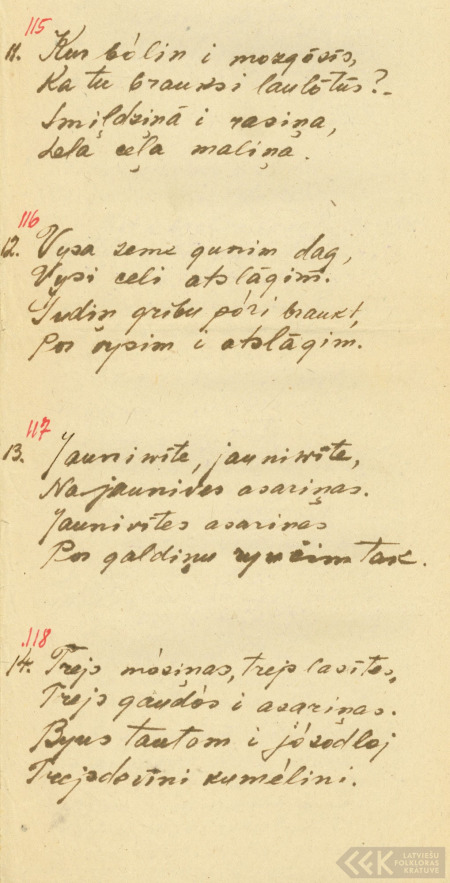 115
11. Kur bólin i mozgósīs,
Ka tu brauksi laulōtūs?
Smiļdziņā i rasiņa,
Lelā ceļa maliņā.
116
12. Vysa zeme gunim dag,
Vysi celi atslāgim.
Šudin gribu póri braukt,
Por vysim i atslāgim.
117
13. Jauniwīte, jauniwīte,
Na jaunives asariņas.
Jaunivītes asarinas
Por galdiņu ryučim tak.
118
14. Trejs mósinas, trejs lasītes,
Trejs gaudós i asariņas.
Byus tautom i jósadloj
Trejsdovīni kumélini.
LATVIEŠU
FOLKLORAS
KRĀTUVE